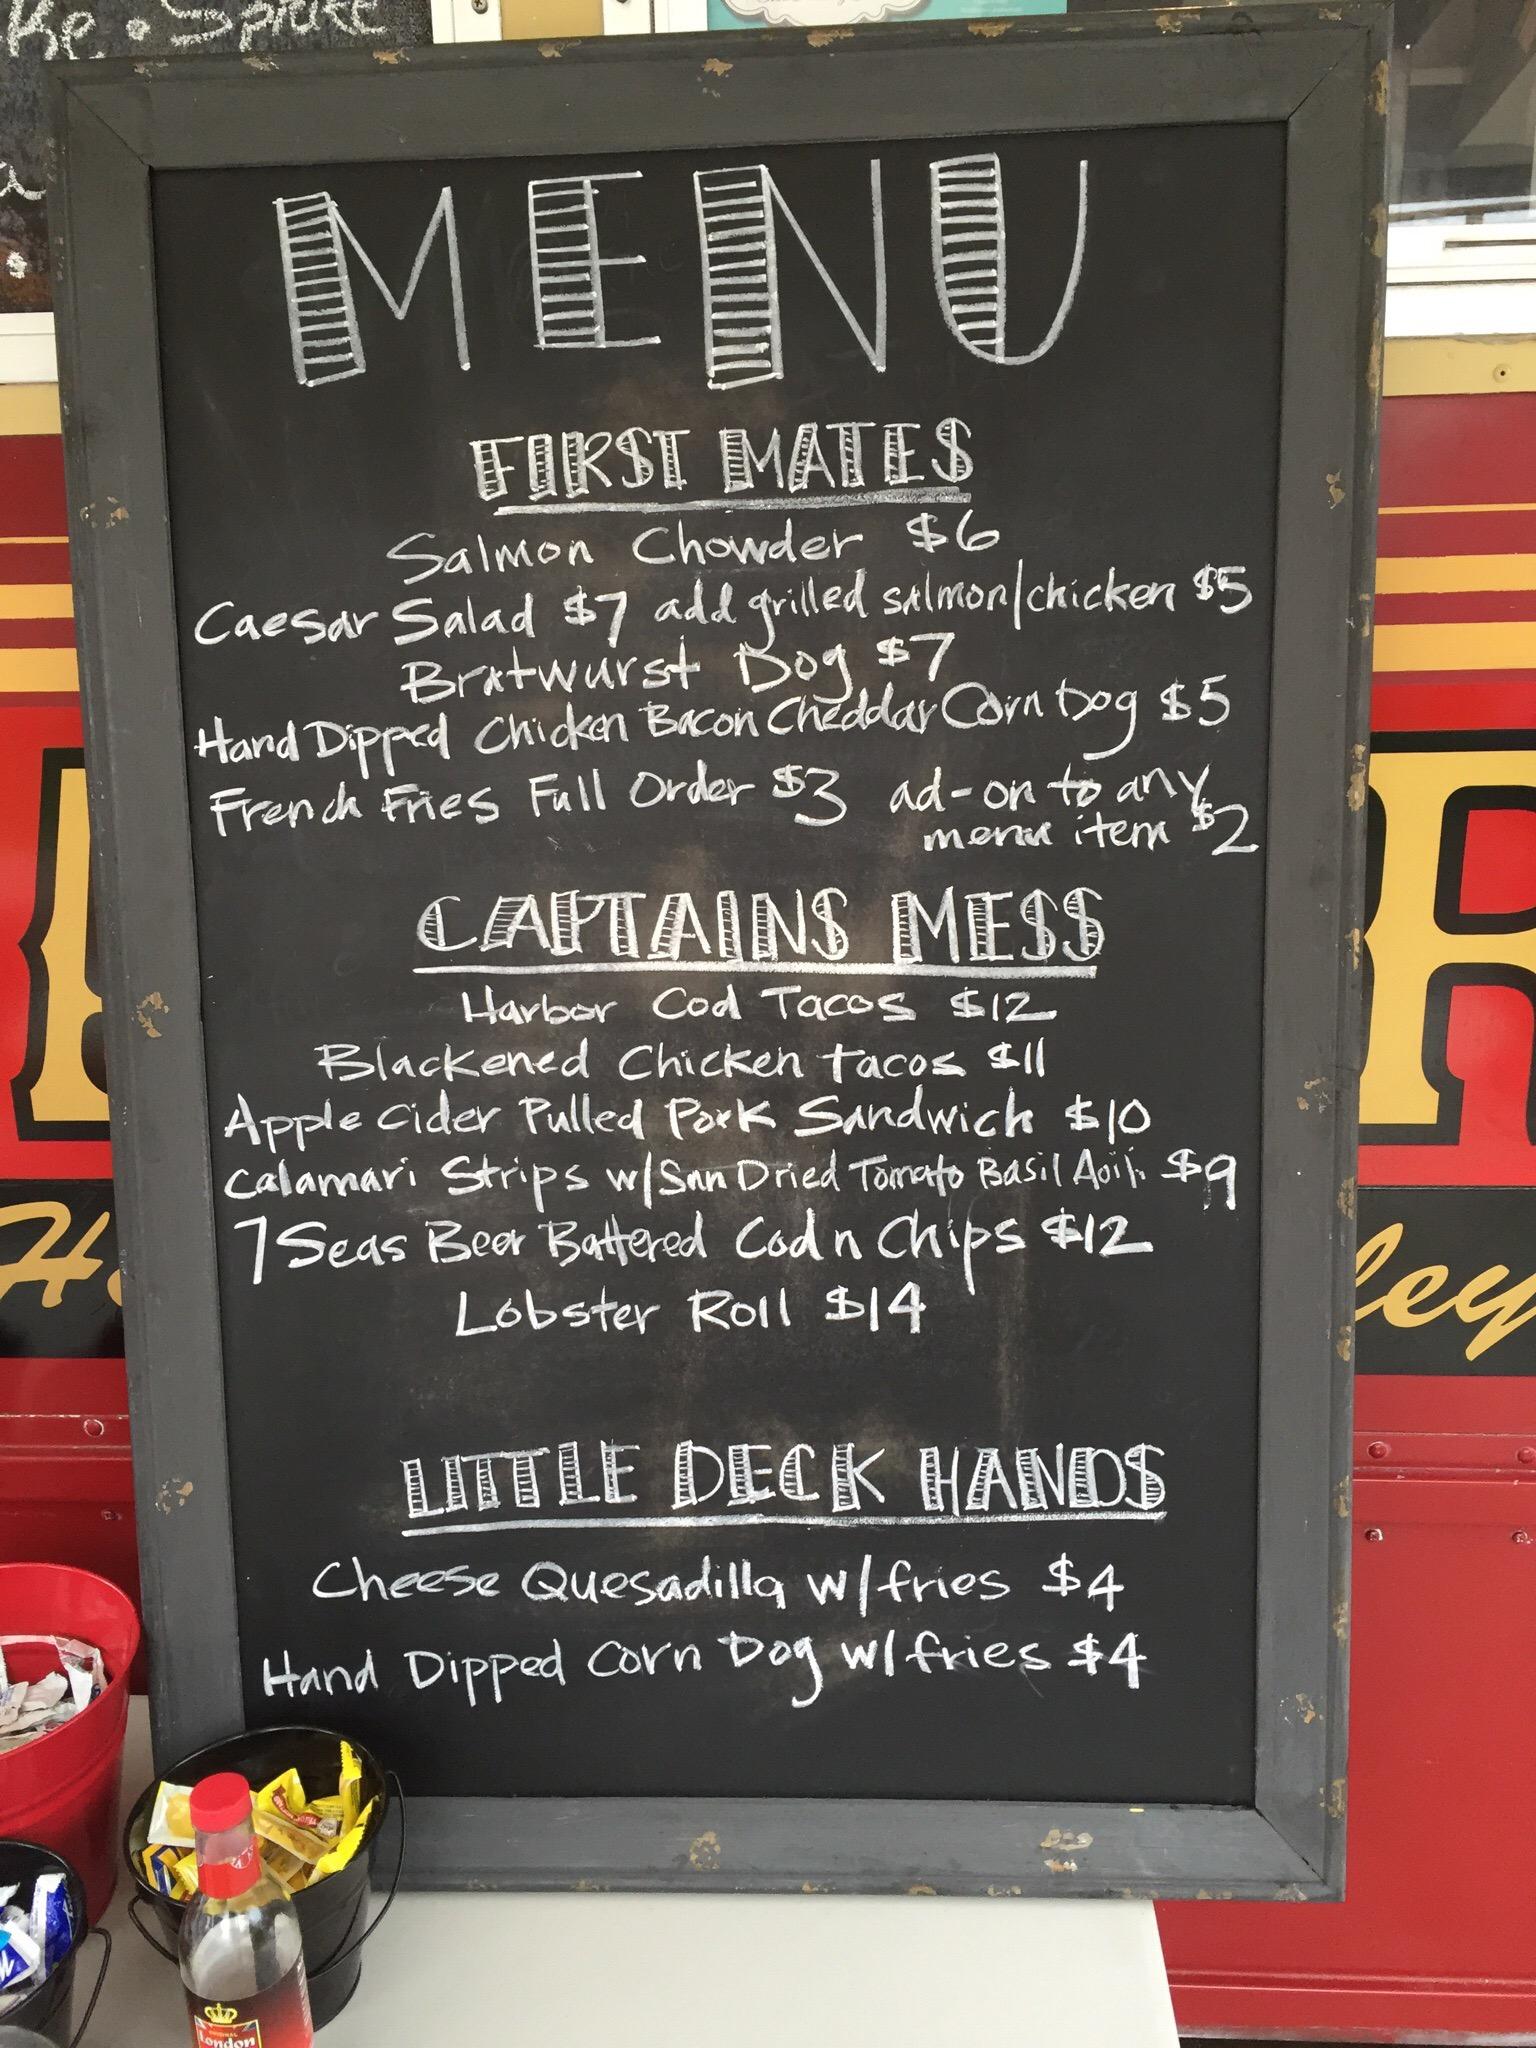 ke. SPIKE
MENU
FIRST MATES
Salmon Chowder $6
Caesar Salad $7 add grilled salmon/chicken $5
Bratwurst Dog $7
Hand Dipped Chicken Bacon Cheddar Corn Dog $5
French Fries Full Order $3 ad-on to any
menu item $2
CAPTAINS MESS
Harbor Cod Tacos $12
Blackened Chicken tacos $11
Apple Cider Pulled Pork Sandwich $10
Calamari Strips w/Sun Dried Tomato Basil Aoili $9
7 Seas Beer Battered Cod n Chips $12
Lobster Roll $14
LITTLE DECK HANDS
Cheese Quesadilla w/fries $4
Hand Dipped Corn Dog w/fries $4
R
H
ley
ORIGINAL
London